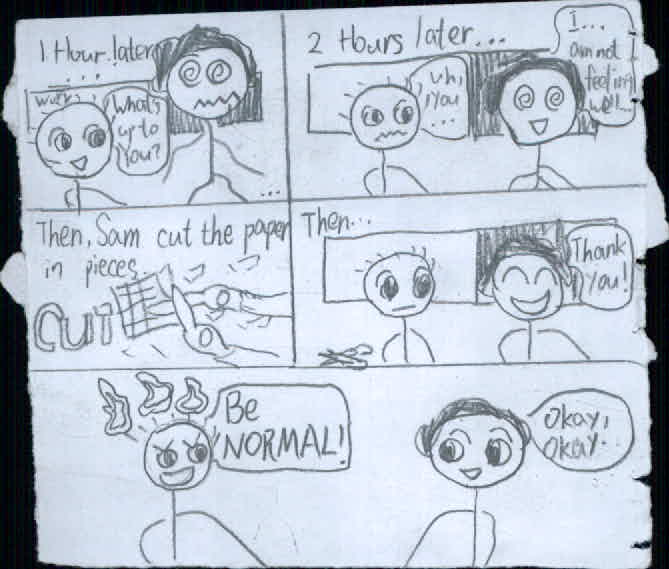 1 Hour later
...
What's
up to
You?
...
2 Hours later...
Uh,
You
...
I...
am not
feeling
well...
Then, Sam cut the paper
in pieces
CUT
Then...
Thank
You!
Be
NORMAL!
Okay,
Okay.